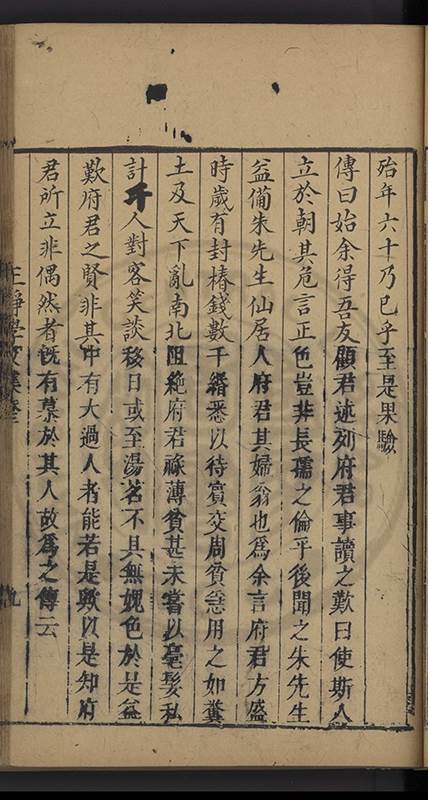 殆年六十乃已乎至是果驗
傳曰始余得吾友顧君述列府君事讀之歎曰使斯人
立於朝其危言正色豈非長孺之倫乎後聞之朱先生
益備朱先生仙居人府君其婦翁也爲余言府君方盛
時歲有封樁錢數千緡悉以待賓交周貧急用之如糞
土及天下亂南北阻絶府君祿薄貧甚未嘗以毫髮私
計千人對客笑談移日或至湯茗不具無媿色於是益
歎府君之賢非其中有大過人者能若是歟以是知府
君所立非偶然者旣有慕於其人故爲之傳云
王靜學文集卷
九